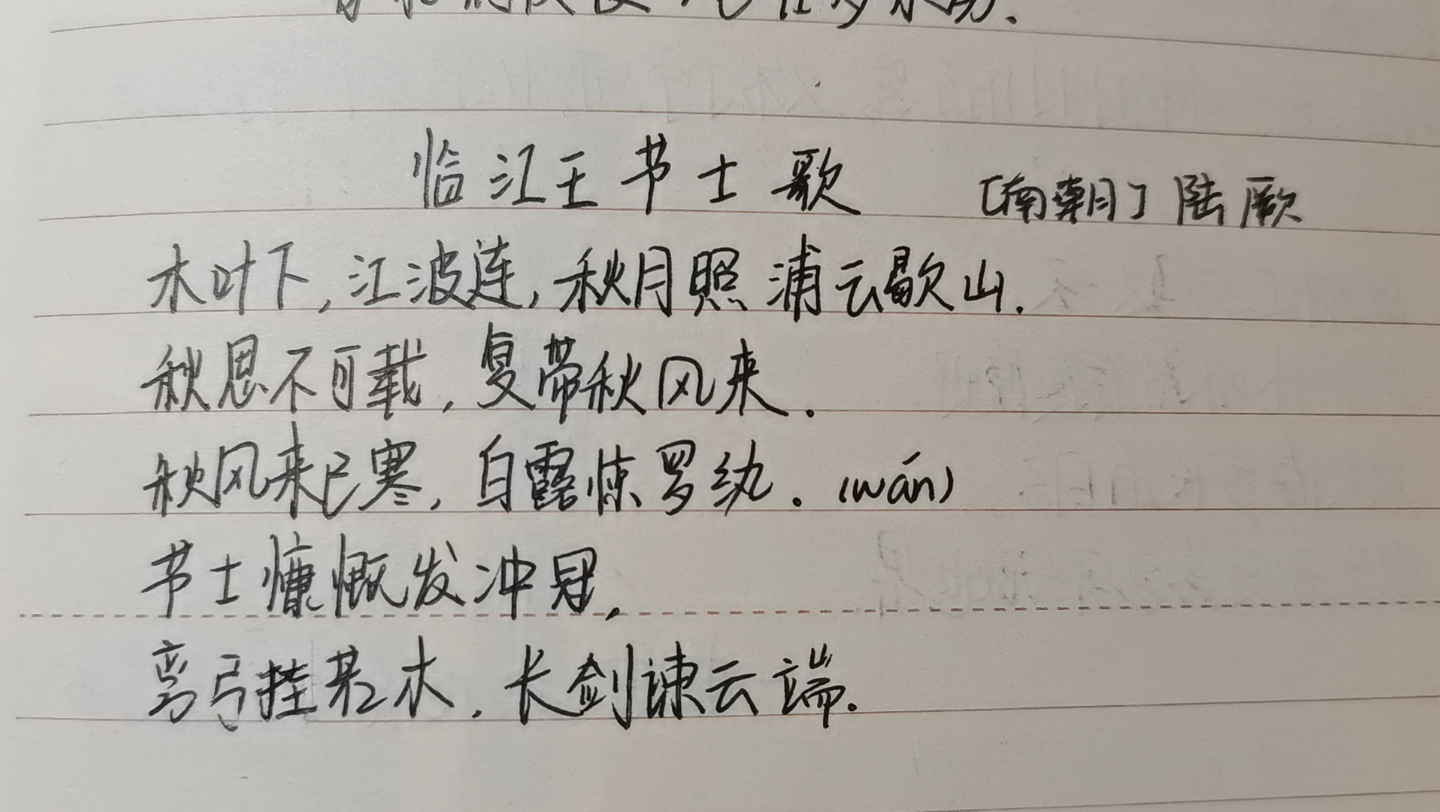 临江王节士歌 [南朝] 陆厥
木叶下,江波连,秋月照浦云歇山.
秋思不可载,复带秋风来.
秋风来已寒,白露惊罗纨.(wán)
节士慷慨发冲冠,
弯弓挂若木,长剑竦云端.